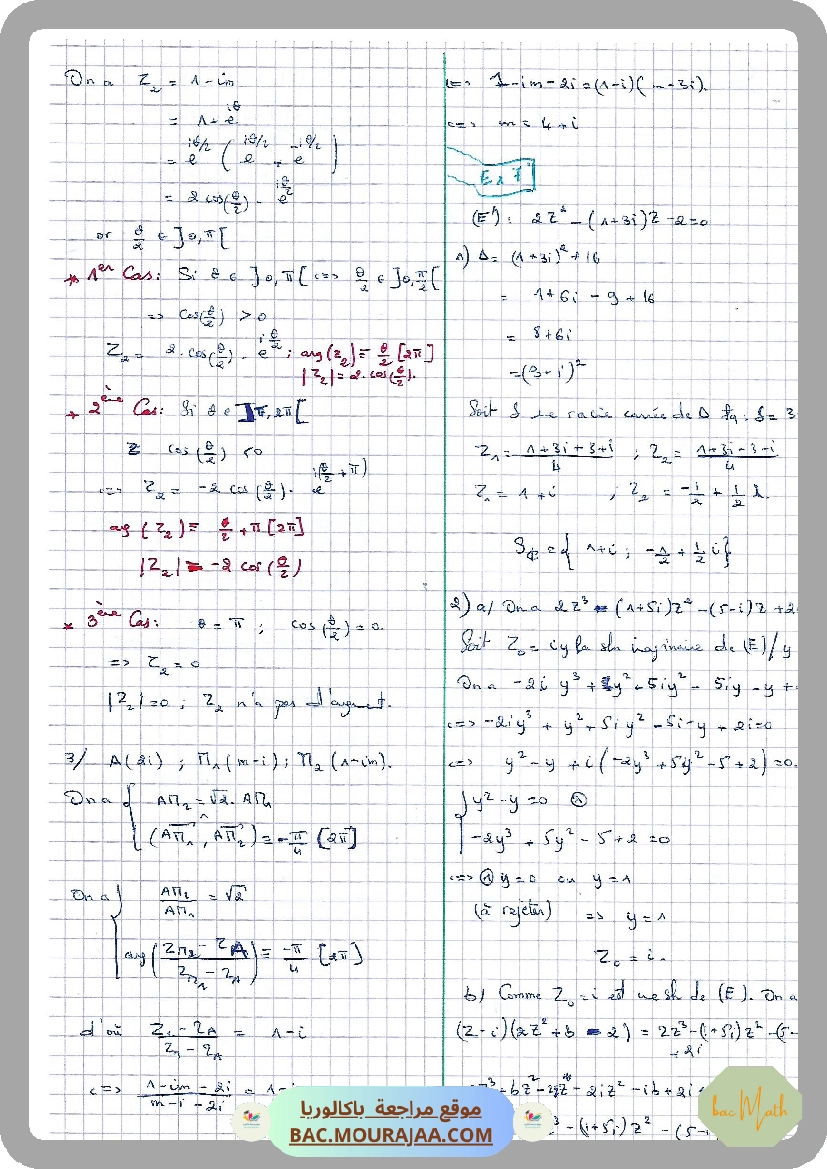 On a Z₂ = 1-im
= 1+e^{iθ}
= e^{iθ/2} ( e^{iθ/2} + e^{-iθ/2} )
= 2 cos(θ/2) · e^{iθ/2}
or θ/2 ∈ ]0,π[
* 1er Cas: Si θ ∈ ]0,π[ <=> θ/2 ∈ ]0,π/2[
=> cos(θ/2) > 0
Z₂ = 2·cos(θ/2) · e^{iθ/2} ; arg(z₂) ≡ θ/2 [2π]
|Z₂| = 2·cos(θ/2).
* 2ème Cas: Si θ ∈ ]π,2π[
cos(θ/2) <0
<=> Z₂ = -2 cos(θ/2) · e^{i(θ/2+π)}
arg(Z₂) ≡ θ/2 + π [2π]
|Z₂| = -2 cos(θ/2)
* 3ème Cas: θ = π ; cos(θ/2) = 0.
=> Z₂ = 0
|Z₂| = 0 ; Z₂ n'a pas d'argument.
3/ A(2i) ; M₁(m-i) ; M₂(1-im).
On a { AM₂ = √2. AM₁
(AM₁, AM₂) ≡ -π/4 [2π]
On a { AM₂/AM₁ = √2
arg((Z_{M₂} - Z_A)/(Z_{M₁} - Z_A)) ≡ -π/4 [2π]
d'où (Z₂ - Z_A)/(Z₁ - Z_A) = 1-i
<=> (1-im-2i)/(m-i-2i) = 1-i
<=> 1-im-2i = (1-i)(m-3i).
<=> m = 4+i
Ex 7
(E'): 2Z² - (1+3i)Z - 2 = 0
1) Δ = (1+3i)² + 16
= 1+6i - 9 + 16
= 8+6i
= (3+i)²
Soit δ une racine carrée de Δ tq: δ = 3
Z₁ = (1+3i+3+i)/4 ; Z₂ = (1+3i-3-i)/4
Z₁ = 1+i ; Z₂ = -1/2 + 1/2 i.
S_ℂ = { 1+i ; -1/2 + 1/2 i }
2) a/ On a 2Z³ - (1+5i)Z² - (5-i)Z + 2
Soit Z₀ = iy la sln imaginaire de (E) / y
On a -2i y³ + y² + 5iy² - 5iy - y +
<=> -2iy³ + y² + 5iy² - 5i-y + 2i=0
<=> y² - y + i(-2y³ + 5y² - 5 + 2) = 0.
{ y² - y = 0 ①
-2y³ + 5y² - 5 + 2 = 0
<=> ① y = 0 ou y = 1
(à rejeter) => y = 1
Z₀ = i.
b/ Comme Z₀ = i est une sln de (E). On a
(Z-i)(2Z² + b - 2) = 2Z³ - (1+5i)Z² - (5-
+2i
+ bZ² - 2iZ² - ib + 2i
- (1+5i)Z² - (5-i
موقع مراجعة باكالوريا
BAC.MOURAJAA.COM
bac Math